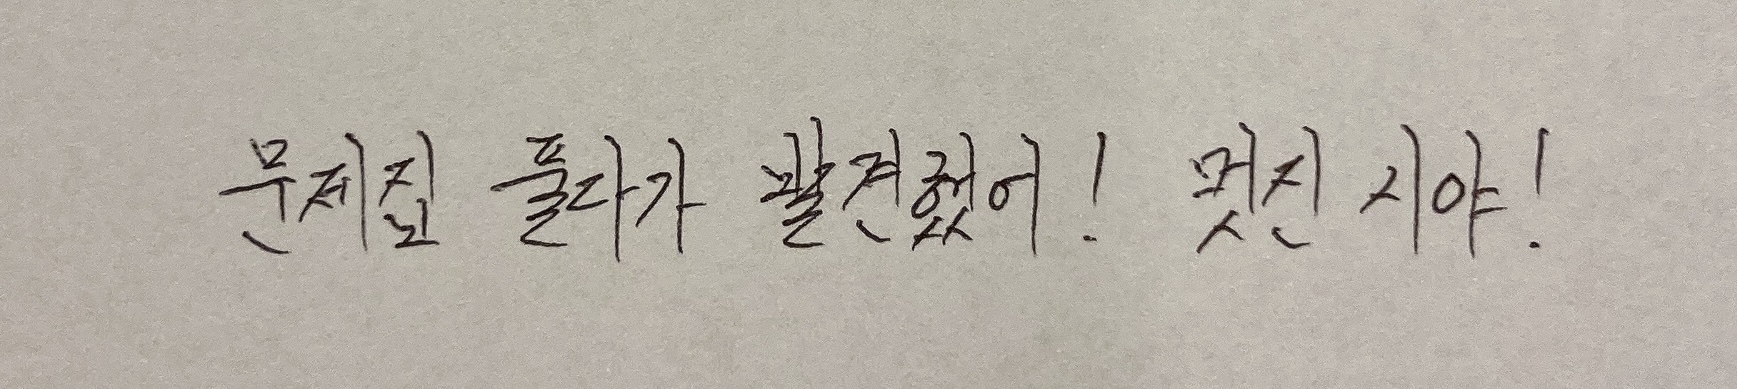 문제집 풀다가 발견했어! 멋진 시야!